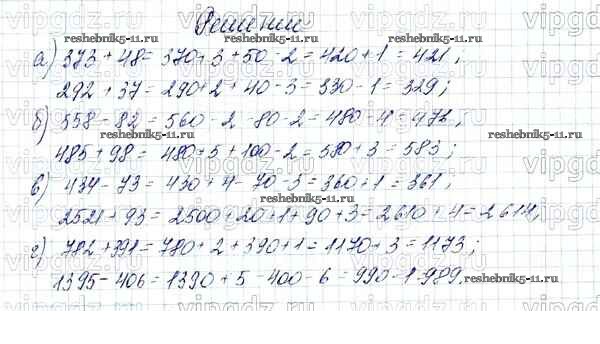 Решение
а) 373 + 48 = 370 + 3 + 50 - 2 = 420 + 1 = 421;
292 + 37 = 290 + 2 + 40 - 3 = 330 - 1 = 329;
б) 558 - 82 = 560 - 2 - 80 - 2 = 480 - 4 = 476;
485 + 98 = 480 + 5 + 100 - 2 = 580 + 3 = 583;
в) 434 - 73 = 430 + 4 - 70 - 3 = 360 + 1 = 361,
2521 + 93 = 2500 + 20 + 1 + 90 + 3 = 2610 + 4 = 2614,
г) 782 + 391 = 780 + 2 + 390 + 1 = 1170 + 3 = 1173;
1395 - 406 = 1390 + 5 - 400 - 6 = 990 - 1 = 989.
reshebnik5-11.ru
reshebnik5-11.ru
reshebnik5-11.ru
reshebnik5-11.ru
reshebnik5-11.ru
reshebnik5-11.ru
vipgdz.ru